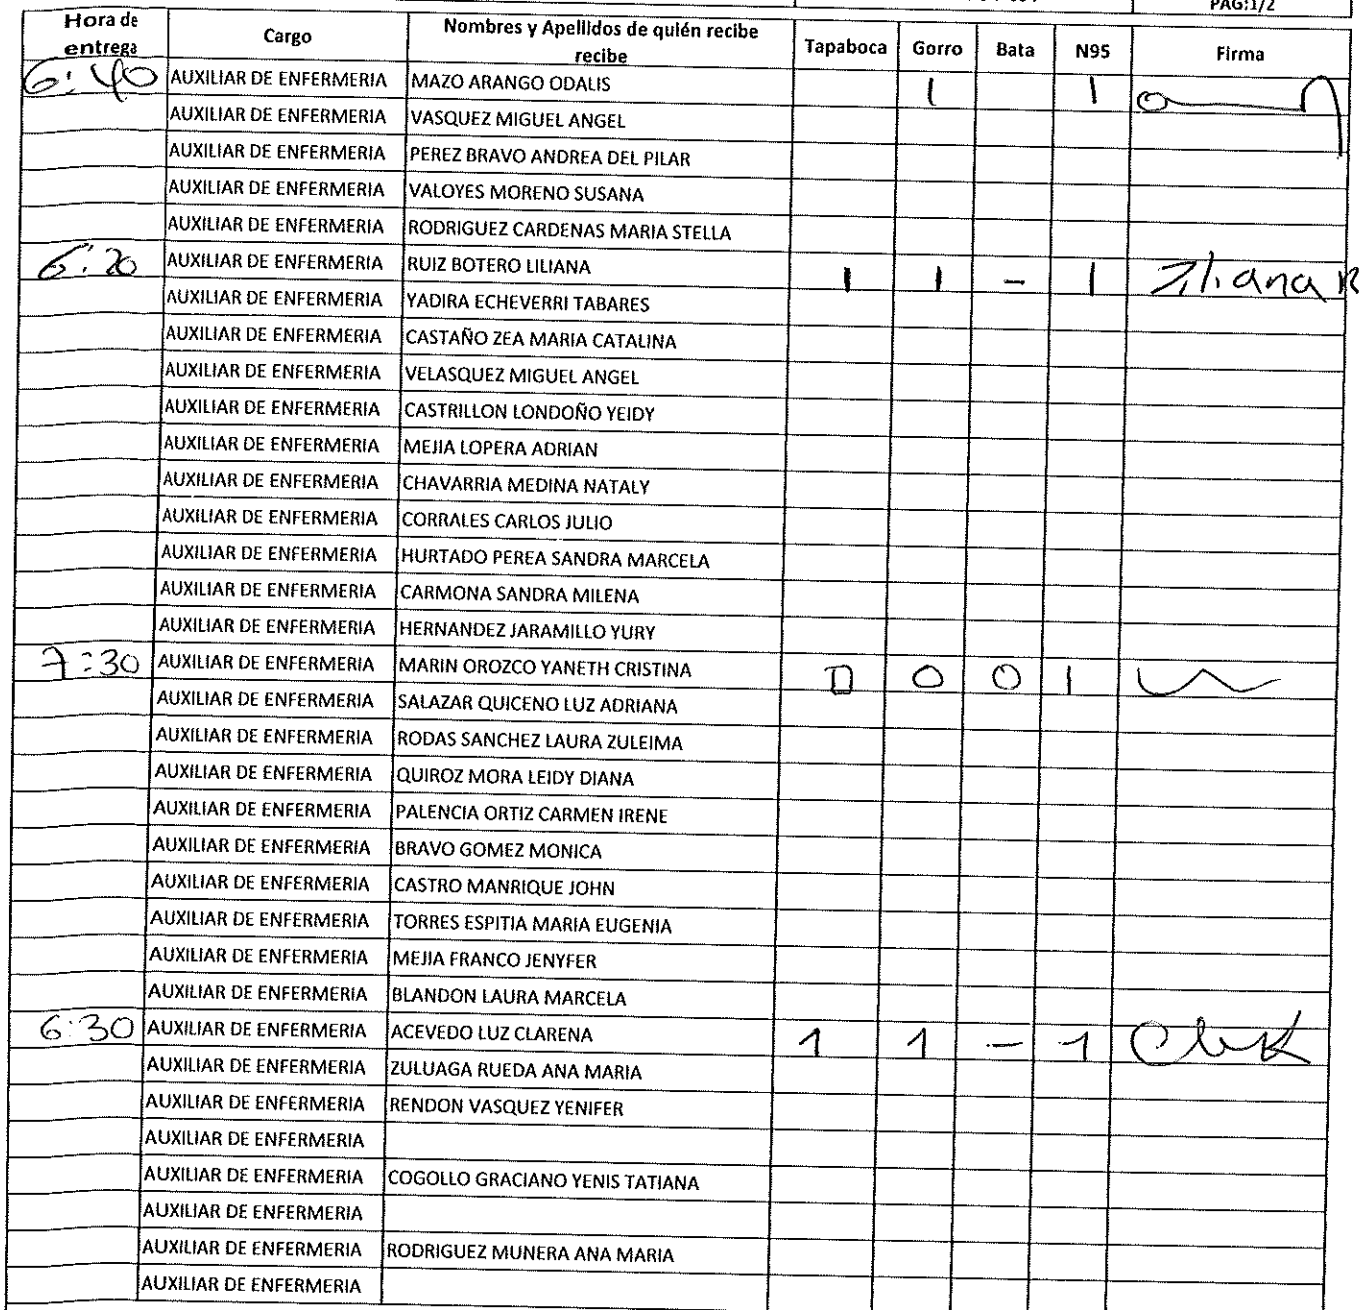 PAG:1/2
Hora de entrega Cargo Nombres y Apellidos de quién recibe recibe Tapaboca Gorro Bata N95 Firma
6:40 AUXILIAR DE ENFERMERIA MAZO ARANGO ODALIS 1 1
AUXILIAR DE ENFERMERIA VASQUEZ MIGUEL ANGEL
AUXILIAR DE ENFERMERIA PEREZ BRAVO ANDREA DEL PILAR
AUXILIAR DE ENFERMERIA VALOYES MORENO SUSANA
AUXILIAR DE ENFERMERIA RODRIGUEZ CARDENAS MARIA STELLA
6:20 AUXILIAR DE ENFERMERIA RUIZ BOTERO LILIANA 1 1 - 1 Liliana R
AUXILIAR DE ENFERMERIA YADIRA ECHEVERRI TABARES
AUXILIAR DE ENFERMERIA CASTAÑO ZEA MARIA CATALINA
AUXILIAR DE ENFERMERIA VELASQUEZ MIGUEL ANGEL
AUXILIAR DE ENFERMERIA CASTRILLON LONDOÑO YEIDY
AUXILIAR DE ENFERMERIA MEJIA LOPERA ADRIAN
AUXILIAR DE ENFERMERIA CHAVARRIA MEDINA NATALY
AUXILIAR DE ENFERMERIA CORRALES CARLOS JULIO
AUXILIAR DE ENFERMERIA HURTADO PEREA SANDRA MARCELA
AUXILIAR DE ENFERMERIA CARMONA SANDRA MILENA
AUXILIAR DE ENFERMERIA HERNANDEZ JARAMILLO YURY
7:30 AUXILIAR DE ENFERMERIA MARIN OROZCO YANETH CRISTINA 0 0 0 1
AUXILIAR DE ENFERMERIA SALAZAR QUICENO LUZ ADRIANA
AUXILIAR DE ENFERMERIA RODAS SANCHEZ LAURA ZULEIMA
AUXILIAR DE ENFERMERIA QUIROZ MORA LEIDY DIANA
AUXILIAR DE ENFERMERIA PALENCIA ORTIZ CARMEN IRENE
AUXILIAR DE ENFERMERIA BRAVO GOMEZ MONICA
AUXILIAR DE ENFERMERIA CASTRO MANRIQUE JOHN
AUXILIAR DE ENFERMERIA TORRES ESPITIA MARIA EUGENIA
AUXILIAR DE ENFERMERIA MEJIA FRANCO JENYFER
AUXILIAR DE ENFERMERIA BLANDON LAURA MARCELA
6:30 AUXILIAR DE ENFERMERIA ACEVEDO LUZ CLARENA 1 1 - 1
AUXILIAR DE ENFERMERIA ZULUAGA RUEDA ANA MARIA
AUXILIAR DE ENFERMERIA RENDON VASQUEZ YENIFER
AUXILIAR DE ENFERMERIA
AUXILIAR DE ENFERMERIA COGOLLO GRACIANO YENIS TATIANA
AUXILIAR DE ENFERMERIA
AUXILIAR DE ENFERMERIA RODRIGUEZ MUNERA ANA MARIA
AUXILIAR DE ENFERMERIA